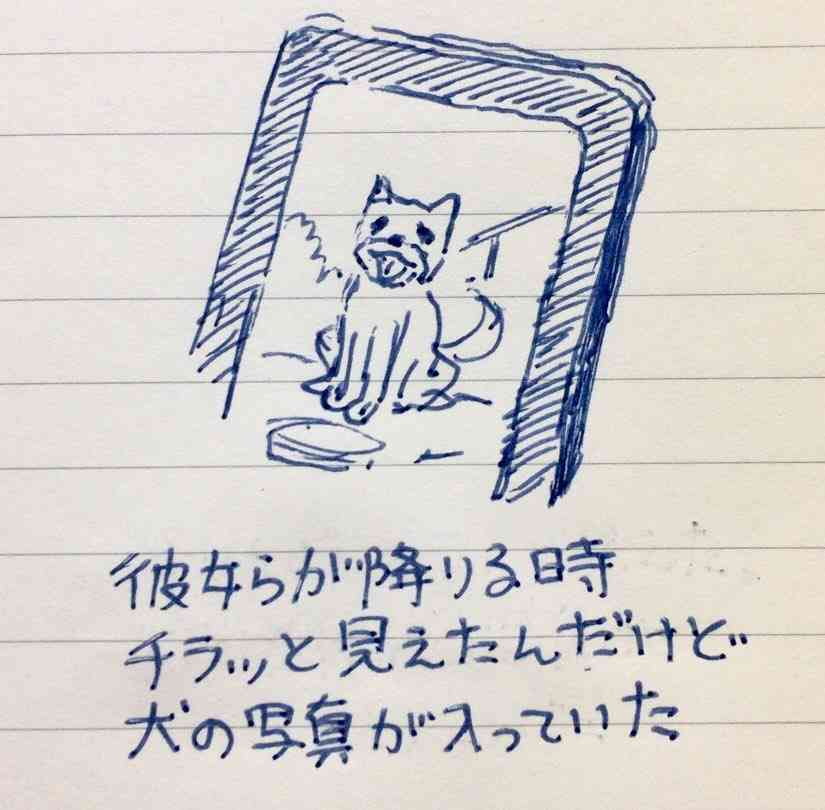 彼女らが降りる時
チラッと見えたんだけど
犬の写真が入っていた